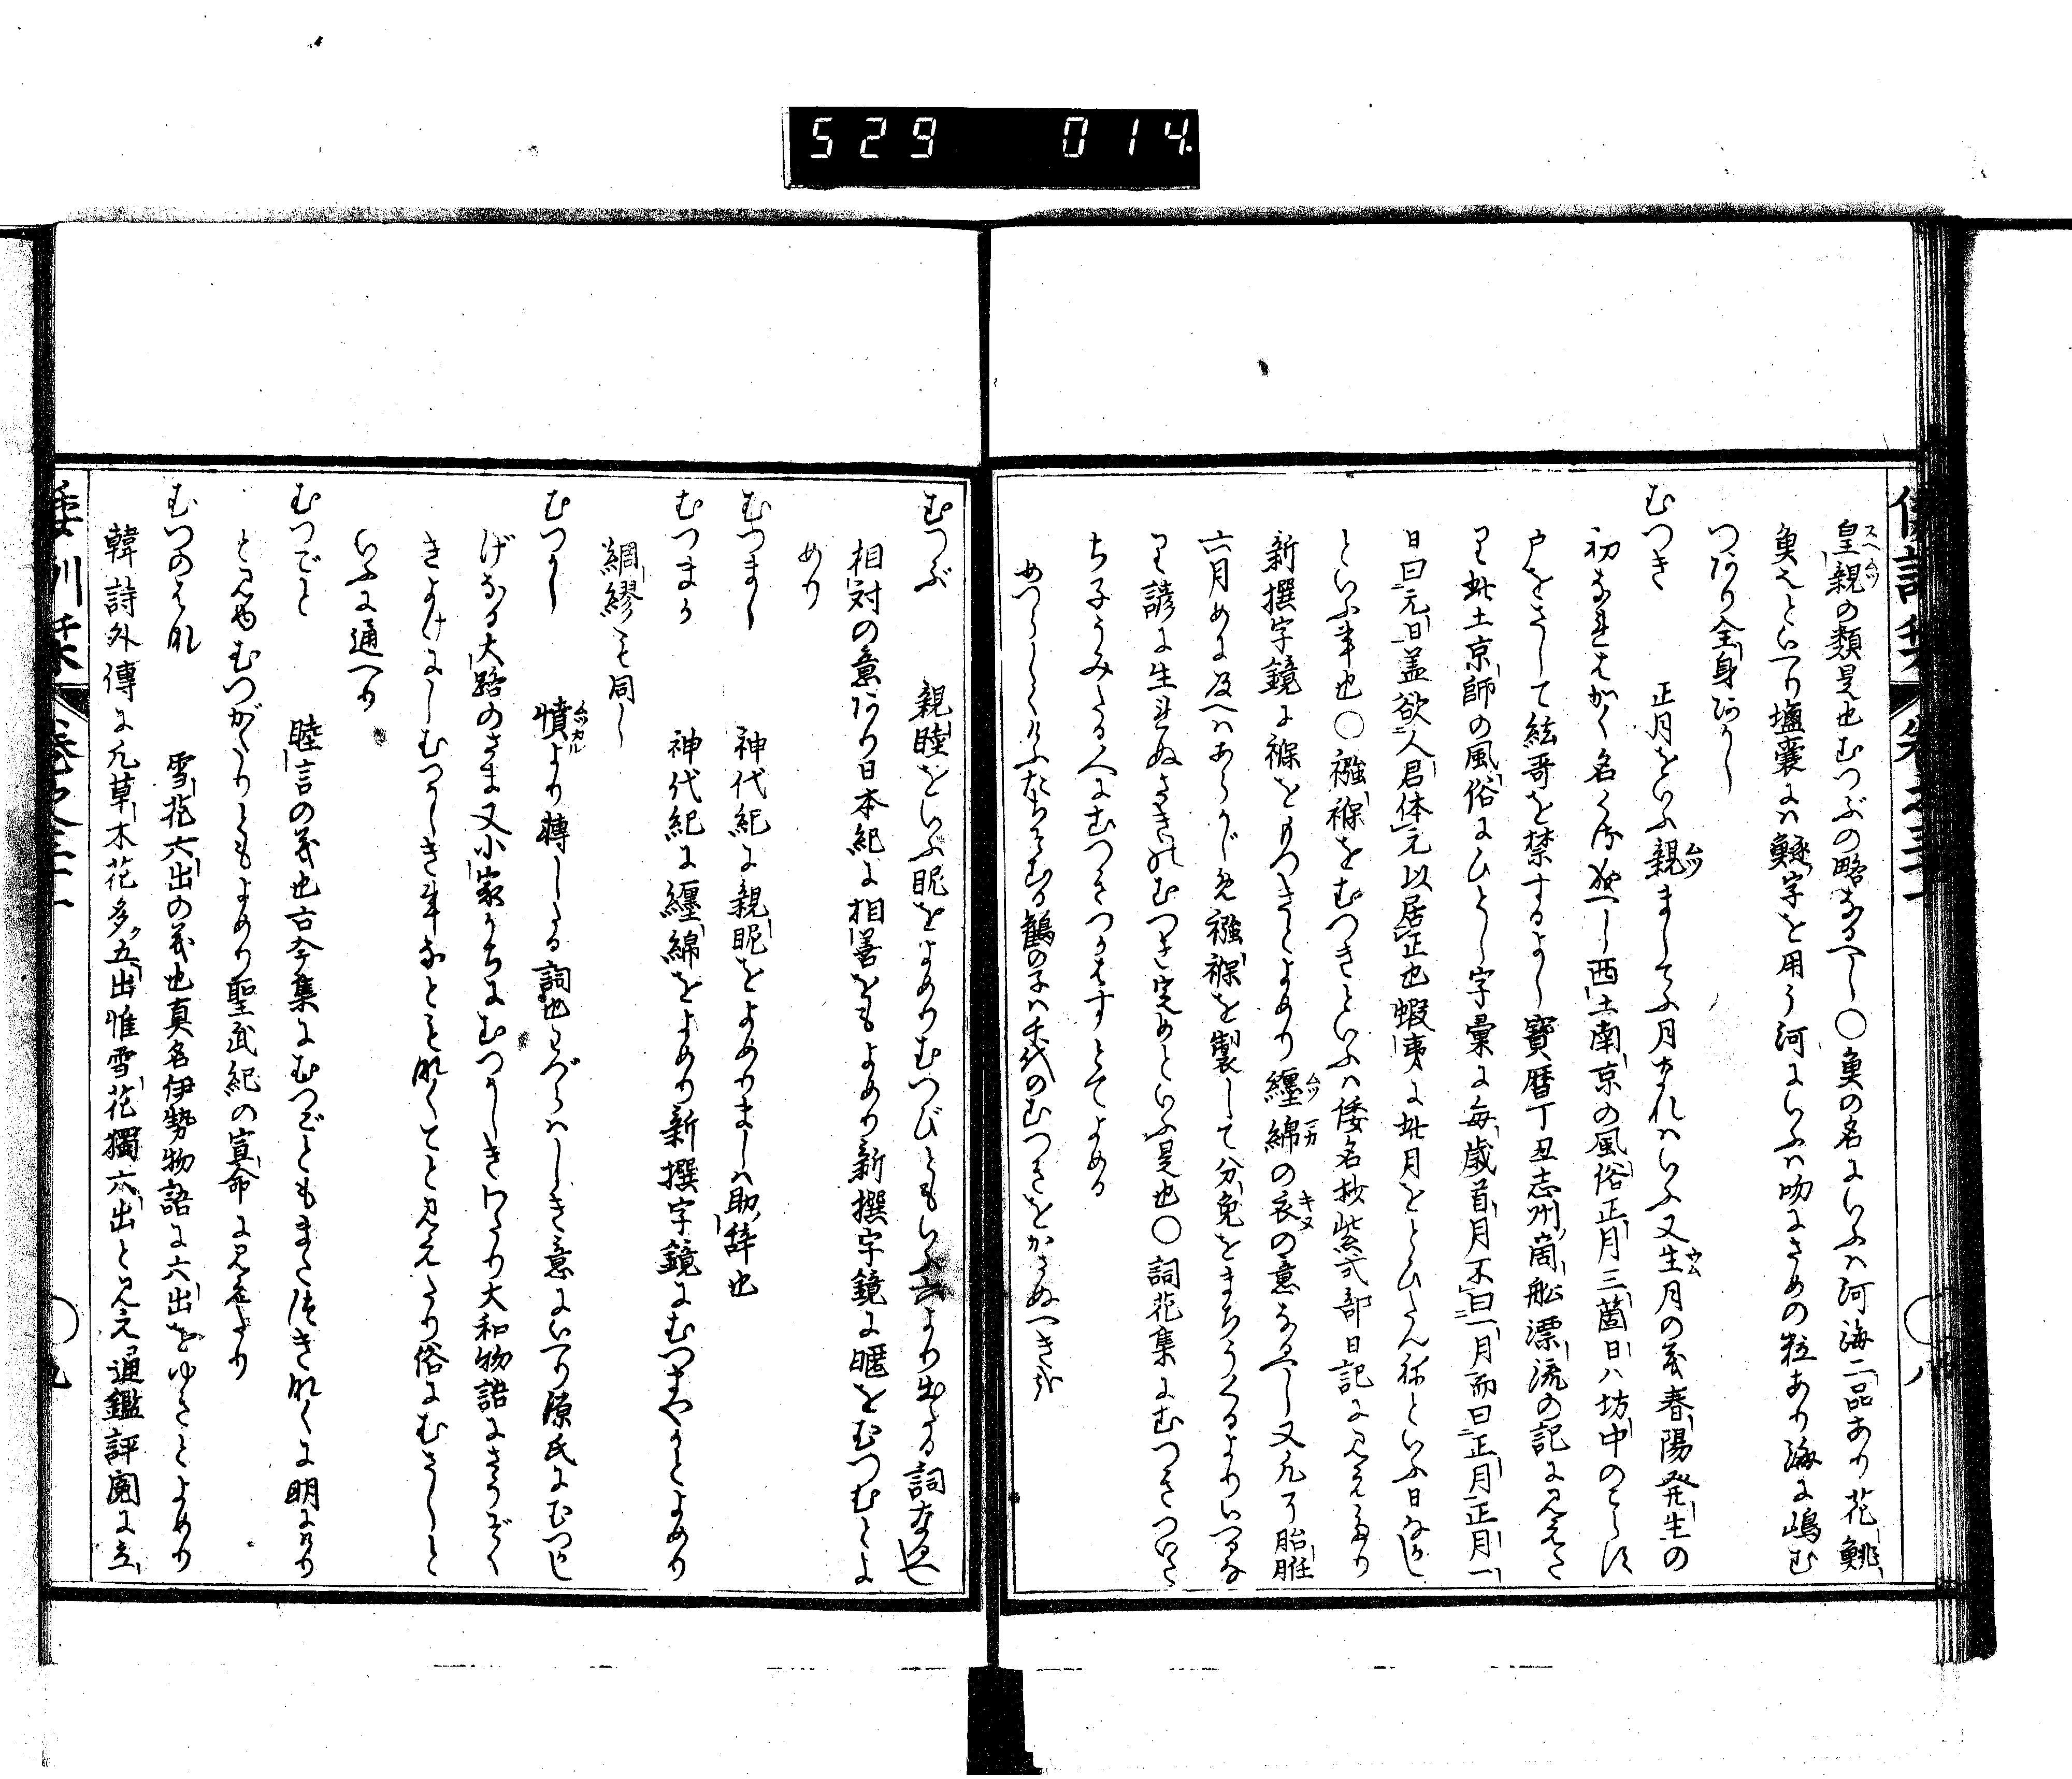 529 014
皇親の類是也むつぶの略なるへし〇魚の名にいふハ河海二品あり花鮡
魚也といへり壒嚢にハ鯥字を用う河にいふハ吻にさめの粒あり海に嶋む
つあり全身あかし
むつき 正月をいふ親ましてふ月なれハいふ又生月の義春陽発生の
初なれはかく名くる成へし西土南京の風俗正月三箇日ハ坊中の
戸をさして絃哥を禁するよし寳暦丁丑志州商舩漂流の記に見えた
り此土京師の風俗にひとし字彙に毎歳首月不曰一月而曰正月正月一
日曰元日盖欲人君体元以居正也蝦夷に此月をとひたんねといふ日なかし
といふ事也〇襁褓をむつきといふハ倭名抄紫式部日記に見えたり
新撰字鏡に褓をもつきとよめり纏綿の衣の意なるへし又凡そ胎胚
六月めに及へハあらかじめ襁褓を製して分免をまちうくるよりいつる
り諺に生れぬさきのむつき定めといふ是也〇詞花集にむつきつい
ち子うみたる人にむつきつかはすとてよめる
めつらしくけふたちそむる鶴の子ハ千代のむつきをかさぬへき哉
むつぶ 親睦をいふ昵をよめりむつびともいふ六より出たる詞なるへし
相対の意あり日本紀に相善をもよめり新撰字鏡に暱をむつむとよ
めり
むつまし 神代紀に親昵をよめりましハ助辞也
むつまか 神代紀に纏綿をよめり新撰字鏡にむつまやかとよめり
綢繆も同し
むつかし 憤より轉したる詞也わづらハしき意にいへり源氏にむつかし
げなる大路のさま又小家かちにむつかしきわたり大和物語にさうぞく
きよけにしむつかしき事なともなくてと見えたり俗にむさしと
いふに通へり
むつごと 睦言の義也古今集にむつごともまたつきなくに明にけり
と見ゆむつがたりともよめり聖武紀の宣命に見えたり
むつのはな 雪花六出の義也真名伊勢物語に六出をゆきとよめり
韓詩外傳に凡草木花多五出惟雪花獨六出と見え通鑑評閲に立